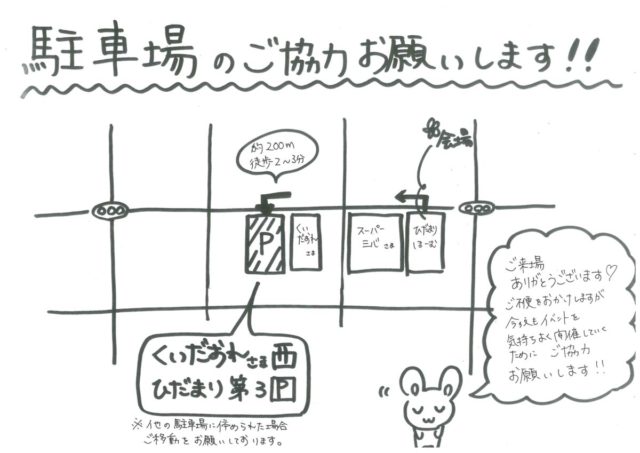 駐車場のご協力お願いします!!
約200m
徒歩2〜3分
会場
P
くいだおれさま
スーパーミバさま
ひだまりほーむ
くいだおれさま西
ひだまり第3P
※他の駐車場に停められた場合
ご移動をお願いしております。
ご来場
ありがとうございます♡
ご不便をおかけしますが
今後もイベントを
気持ちよく開催していく
ために ご協力
お願いします!!